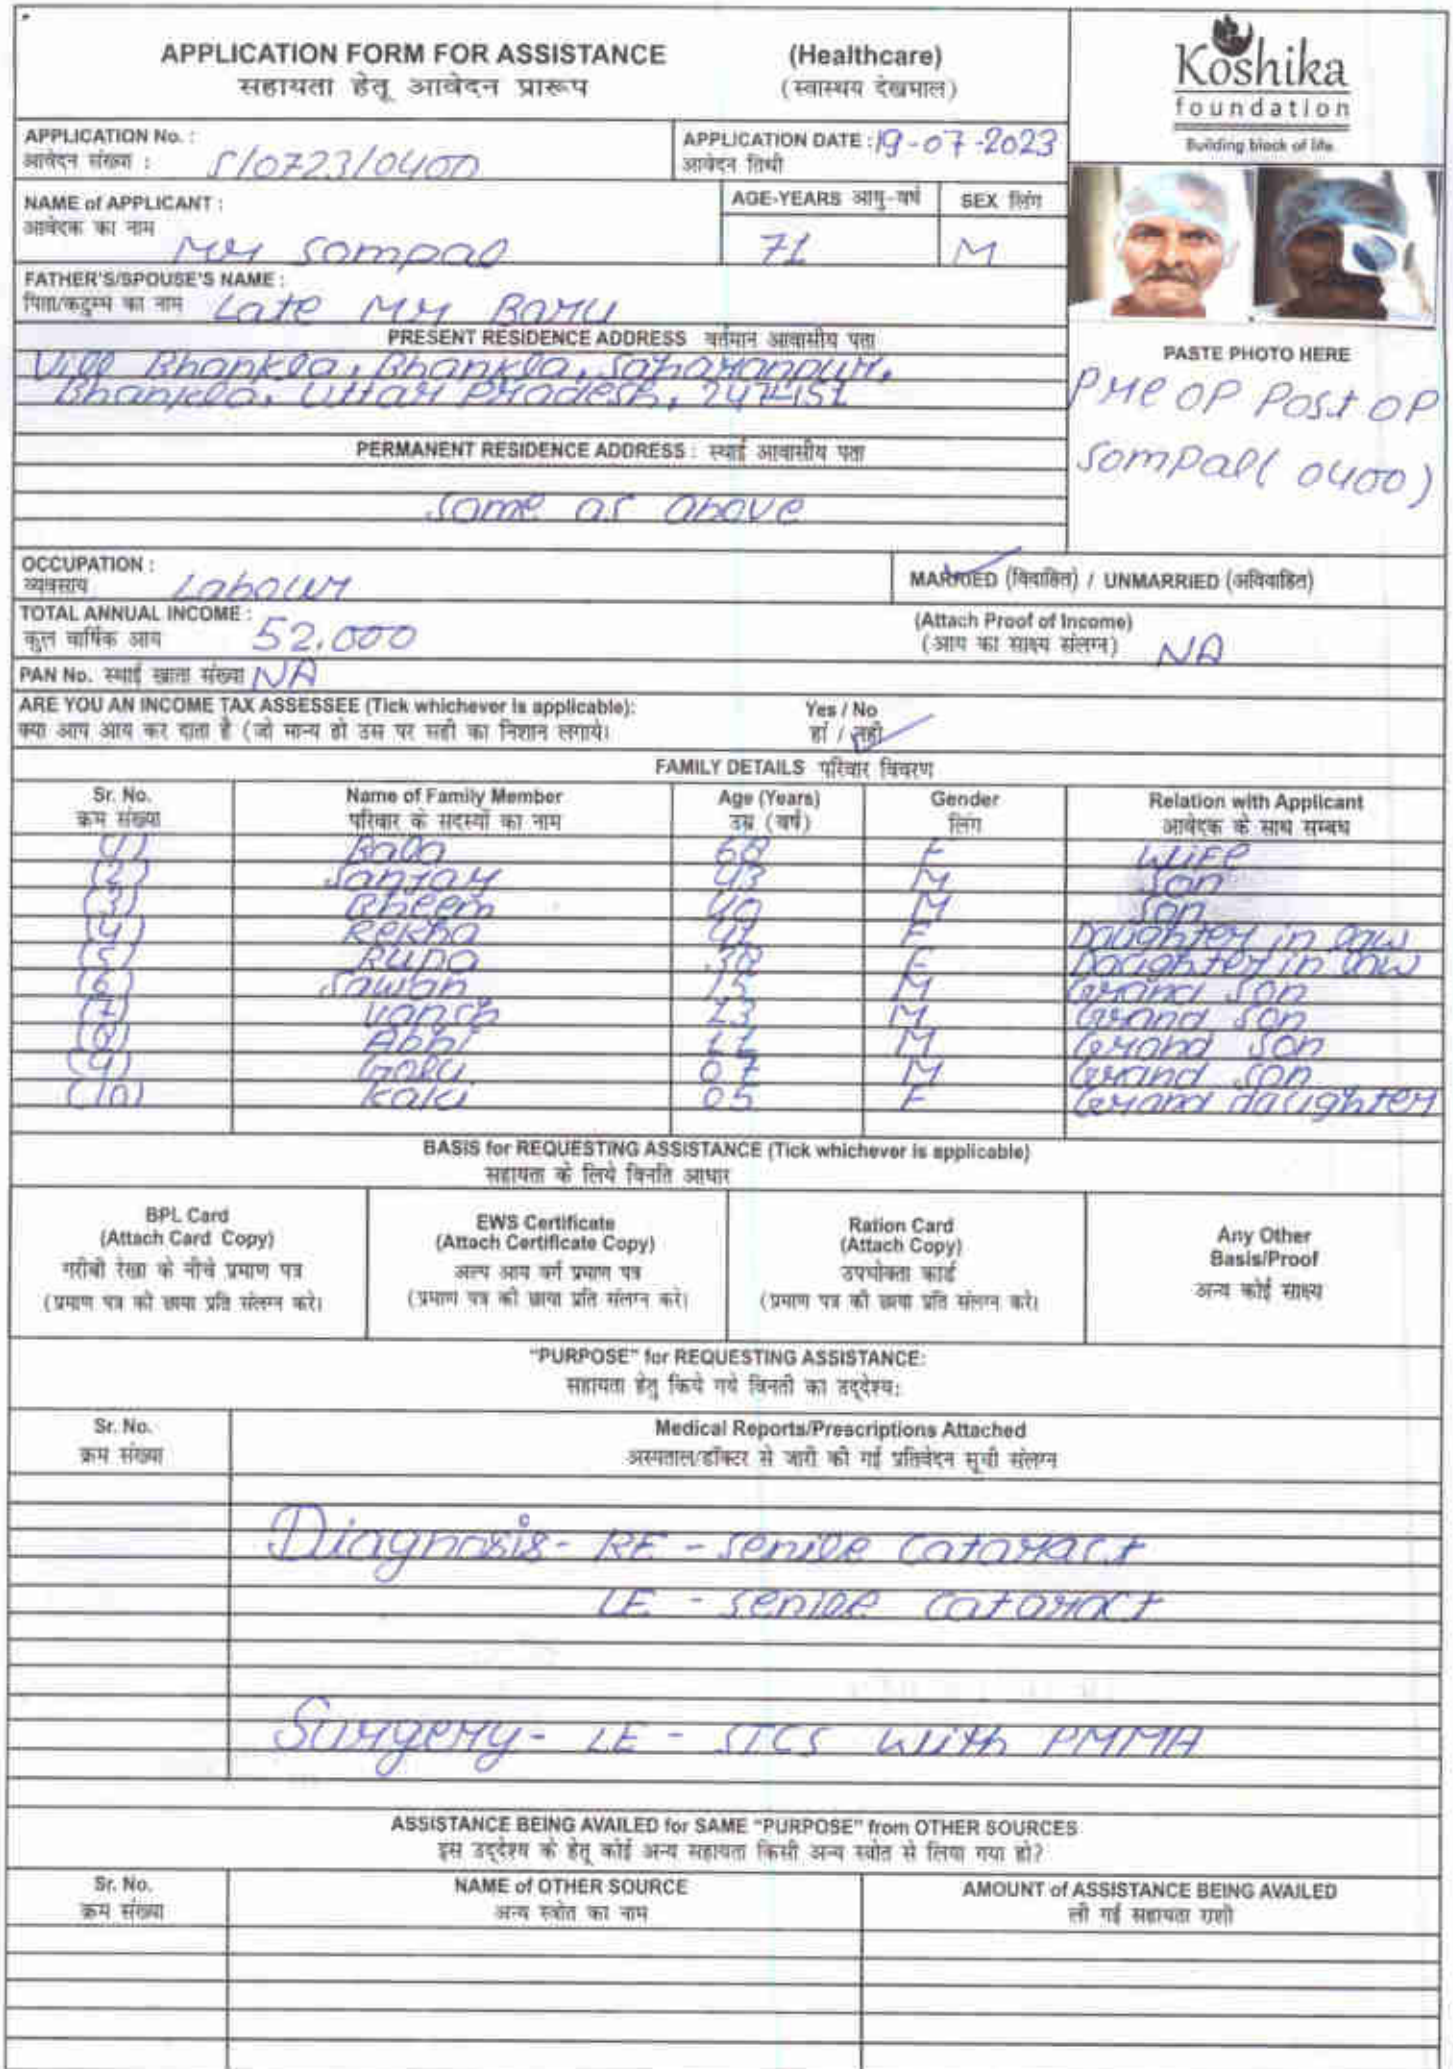 APPLICATION FORM FOR ASSISTANCE (Healthcare)
सहायता हेतू आवेदन प्रारूप (स्वास्थय देखभाल)
Koshika
foundation
Building block of life
APPLICATION No. :
आवेदन संख्या : S/0723/0400
APPLICATION DATE : 19-07-2023
आवेदन तिथी
NAME of APPLICANT :
आवेदक का नाम Mr Sompal
AGE-YEARS आयु-वर्ष 71
SEX लिंग M
FATHER'S/SPOUSE'S NAME :
पिता/कटुम्ब का नाम Late Mr Baru
PRESENT RESIDENCE ADDRESS वर्तमान आवासीय पता
Vill Bhankla, Bhankla, Saharanpur,
Bhankla, Uttar Pradesh, 247451
PASTE PHOTO HERE
Pre OP Post OP
Sompal( 0400)
PERMANENT RESIDENCE ADDRESS : स्थाई आवासीय पता
Same as above
OCCUPATION :
व्यवसाय Labour
MARRIED (विवाहित) / UNMARRIED (अविवाहित)
TOTAL ANNUAL INCOME :
कुल वार्षिक आय 52,000
(Attach Proof of Income)
(आय का साक्ष्य संलग्न) NA
PAN No. स्थाई खाता संख्या NA
ARE YOU AN INCOME TAX ASSESSEE (Tick whichever is applicable): Yes / No
क्या आप आय कर दाता है (जो मान्य हो उस पर सही का निशान लगाये। हां / नहीं
FAMILY DETAILS परिवार विवरण
Sr. No. Name of Family Member Age (Years) Gender Relation with Applicant
क्रम संख्या परिवार के सदस्यों का नाम उम्र (वर्ष) लिंग आवेदक के साथ सम्बध
(1) Bala 68 F Wife
(2) Sanjay 43 M Son
(3) Bheem 40 M Son
(4) Rekha 41 F Daughter in law
(5) Rupa 38 F Daughter in law
(6) Sawan 15 M Grand Son
(7) Vansh 13 M Grand Son
(8) Abhi 11 M Grand Son
(9) Golu 07 M Grand Son
(10) Kaku 05 F Grand daughter
BASIS for REQUESTING ASSISTANCE (Tick whichever is applicable)
सहायता के लिये विनति आधार
BPL Card
(Attach Card Copy)
गरीबी रेखा के नीचे प्रमाण पत्र
(प्रमाण पत्र की छाया प्रति संलग्न करे।
EWS Certificate
(Attach Certificate Copy)
अल्प आय वर्ग प्रमाण पत्र
(प्रमाण पत्र की छाया प्रति संलग्न करे।
Ration Card
(Attach Copy)
उपभोक्ता कार्ड
(प्रमाण पत्र की छाया प्रति संलग्न करे।
Any Other
Basis/Proof
अन्य कोई साक्ष्य
"PURPOSE" for REQUESTING ASSISTANCE:
सहायता हेतु किये गये विनती का उद्देश्य:
Sr. No. Medical Reports/Prescriptions Attached
क्रम संख्या अस्पताल/डॉक्टर से जारी की गई प्रतिवेदन सूची संलग्न
Diagnosis- RE - Senile Cataract
LE - Senile Cataract
Surgery- LE - SICS with PMMA
ASSISTANCE BEING AVAILED for SAME "PURPOSE" from OTHER SOURCES
इस उद्देश्य के हेतू कोई अन्य सहायता किसी अन्य स्त्रोत से लिया गया हो?
Sr. No. NAME of OTHER SOURCE AMOUNT of ASSISTANCE BEING AVAILED
क्रम संख्या अन्य स्त्रोत का नाम ली गई सहायता राशी